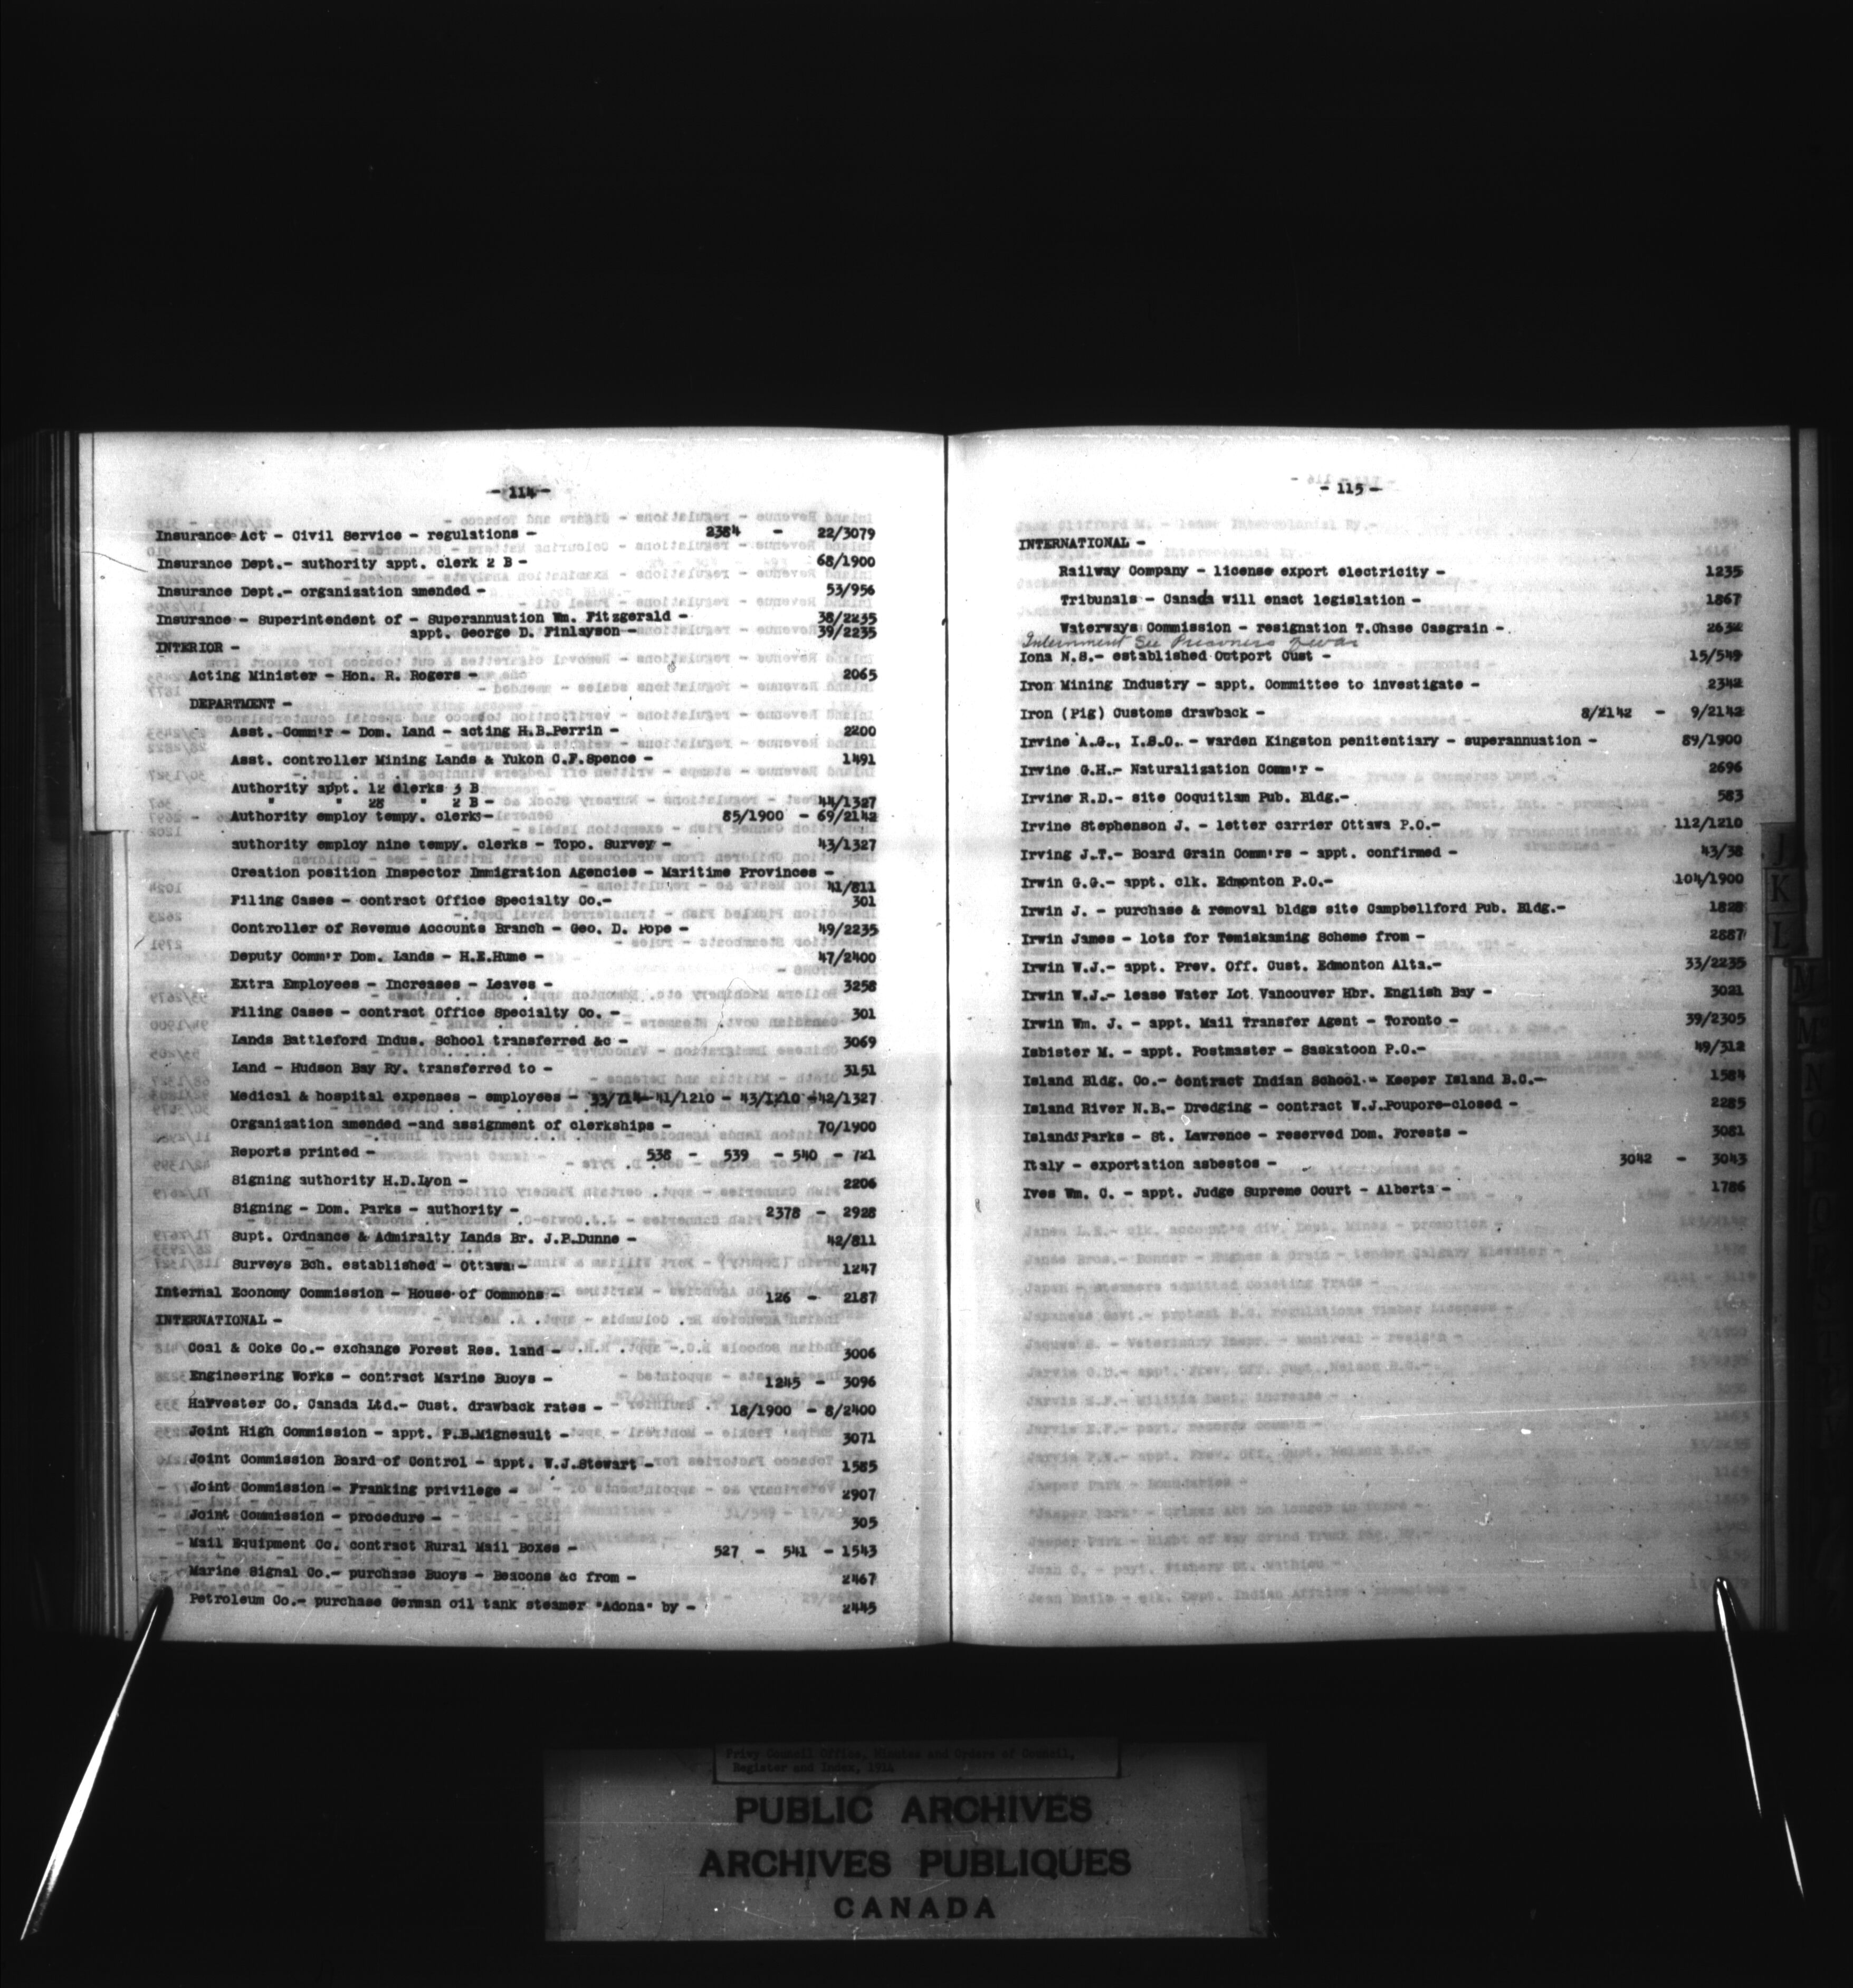 - 114 -
Insurance Act - Civil Service - regulations - 2384 - 22/3079
Insurance Dept.- authority appt. clerk 2 B - 68/1900
Insurance Dept.- organization amended - 53/956
Insurance - Superintendent of - Superannuation Wm. Fitzgerald - 38/2235
appt. George D. Finlayson - 39/2235
INTERIOR -
Acting Minister - Hon. R. Rogers - 2065
DEPARTMENT -
Asst. Comm'r - Dom. Land - acting H.B.Perrin - 2200
Asst. controller Mining Lands & Yukon C.F.Spence - 1491
Authority appt. 12 clerks 3 B
" " 28 " 2 B - 44/1327
Authority employ tempy. clerks- 85/1900 - 69/2142
authority employ nine tempy. clerks - Topo. Survey - 43/1327
Creation position Inspector Immigration Agencies - Maritime Provinces -
41/811
Filing Cases - contract Office Specialty Co.- 301
Controller of Revenue Accounts Branch - Geo. D. Pope - 49/2235
Deputy Comm'r Dom. Lands - H.E.Hume - 47/2400
Extra Employees - Increases - Leaves - 3258
Filing Cases - contract Office Specialty Co. - 301
Lands Battleford Indus. School transferred &c - 3069
Land - Hudson Bay Ry. transferred to - 3151
Medical & hospital expenses - employees - 33/714- 41/1210 - 43/1210 -42/1327
Organization amended -and assignment of clerkships - 70/1900
Reports printed - 538 - 539 - 540 - 721
Signing authority H.D.Lyon - 2206
Signing - Dom. Parks - authority - 2378 - 2928
Supt. Ordnance & Admiralty Lands Br. J.P.Dunne - 42/811
Surveys Bch. established - Ottawa - 1247
Internal Economy Commission - House of Commons - 126 - 2187
INTERNATIONAL -
Coal & Coke Co.- exchange Forest Res. land - 3006
Engineering Works - contract Marine Buoys - 1245 - 3096
Harvester Co. Canada Ltd.- Cust. drawback rates - 18/1900 - 8/2400
Joint High Commission - appt. P.B.Migneault - 3071
Joint Commission Board of Control - appt. W.J.Stewart - 1585
Joint Commission - Franking privilege - 2907
Joint Commission - procedure - 305
Mail Equipment Co. contract Rural Mail Boxes - 527 - 541 - 1543
Marine Signal Co.- purchase Buoys - Beacons &c from - 2467
Petroleum Co.- purchase German oil tank steamer "Adona" by - 2445
- 115 -
INTERNATIONAL -
Railway Company - license export electricity - 1235
Tribunals - Canada will enact legislation - 1867
Waterways Commission - resignation T.Chase Casgrain - 2632
Internment See Prisoners of war
Iona N.S.- established Outport Cust - 15/549
Iron Mining Industry - appt. Committee to investigate - 2342
Iron (Pig) Customs drawback - 8/2142 - 9/2142
Irvine A.G., I.S.O. - warden Kingston penitentiary - superannuation - 89/1900
Irvine G.H.- Naturalization Comm'r - 2696
Irvine R.D.- site Coquitlam Pub. Bldg.- 583
Irvine Stephenson J. - letter carrier Ottawa P.O.- 112/1210
Irving J.T.- Board Grain Comm'rs - appt. confirmed - 43/38
Irwin G.G.- appt. clk. Edmonton P.O.- 104/1900
Irwin J. - purchase & removal bldgs site Campbellford Pub. Bldg.- 1828
Irwin James - lots for Temiskaming Scheme from - 2887
Irwin W.J.- appt. Prev. Off. Cust. Edmonton Alta.- 33/2235
Irwin W.J.- lease Water Lot Vancouver Hbr. English Bay - 3021
Irwin Wm. J. - appt. Mail Transfer Agent - Toronto - 39/2305
Isbister M. - appt. Postmaster - Saskatoon P.O.- 49/312
Island Bldg. Co.- contract Indian School - Keeper Island B.C.- 1584
Island River N.B.- Dredging - contract W.J.Poupore-closed - 2285
Islands Parks - St. Lawrence - reserved Dom. Forests - 3081
Italy - exportation asbestos - 3042 - 3043
Ives Wm. C. - appt. Judge Supreme Court - Alberta - 1786
J
K
L
M
Privy Council Office, Minutes and Orders of Council,
Register and Index, 1914
PUBLIC ARCHIVES
ARCHIVES PUBLIQUES
CANADA